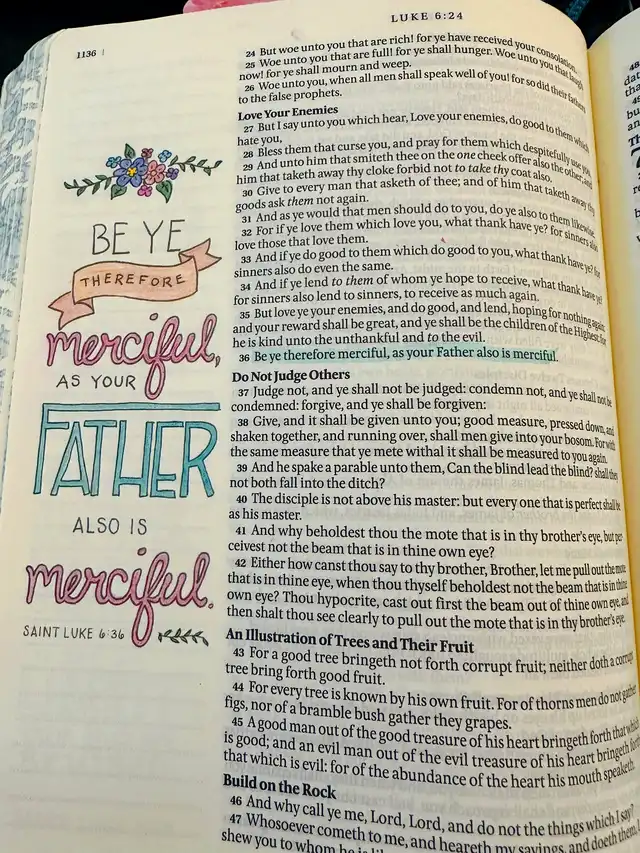 LUKE 6:24
1136
24 But woe unto you that are rich! for ye have received your consolation.
25 Woe unto you that are full! for ye shall hunger. Woe unto you that laugh
now! for ye shall mourn and weep.
26 Woe unto you, when all men shall speak well of you! for so did their fathers
to the false prophets.
Love Your Enemies
27 But I say unto you which hear, Love your enemies, do good to them which
hate you,
28 Bless them that curse you, and pray for them which despitefully use you.
29 And unto him that smiteth thee on the one cheek offer also the other; and
him that taketh away thy cloke forbid not to take thy coat also.
30 Give to every man that asketh of thee; and of him that taketh away thy
goods ask them not again.
31 And as ye would that men should do to you, do ye also to them likewise.
32 For if ye love them which love you, what thank have ye? for sinners also
love those that love them.
33 And if ye do good to them which do good to you, what thank have ye? for
sinners also do even the same.
34 And if ye lend to them of whom ye hope to receive, what thank have ye?
for sinners also lend to sinners, to receive as much again.
35 But love ye your enemies, and do good, and lend, hoping for nothing again;
and your reward shall be great, and ye shall be the children of the Highest: for
he is kind unto the unthankful and to the evil.
36 Be ye therefore merciful, as your Father also is merciful.
Do Not Judge Others
37 Judge not, and ye shall not be judged: condemn not, and ye shall not be
condemned: forgive, and ye shall be forgiven:
38 Give, and it shall be given unto you; good measure, pressed down, and
shaken together, and running over, shall men give into your bosom. For with
the same measure that ye mete withal it shall be measured to you again.
39 And he spake a parable unto them, Can the blind lead the blind? shall they
not both fall into the ditch?
40 The disciple is not above his master: but every one that is perfect shall be
as his master.
41 And why beholdest thou the mote that is in thy brother's eye, but per
ceivest not the beam that is in thine own eye?
42 Either how canst thou say to thy brother, Brother, let me pull out the mote
that is in thine eye, when thou thyself beholdest not the beam that is in thine
own eye? Thou hypocrite, cast out first the beam out of thine own eye, and
then shalt thou see clearly to pull out the mote that is in thy brother's eye.
An Illustration of Trees and Their Fruit
43 For a good tree bringeth not forth corrupt fruit; neither doth a corrupt
tree bring forth good fruit.
44 For every tree is known by his own fruit. For of thorns men do not gather
figs, nor of a bramble bush gather they grapes.
45 A good man out of the good treasure of his heart bringeth forth that which
is good; and an evil man out of the evil treasure of his heart bringeth forth
that which is evil: for of the abundance of the heart his mouth speaketh.
Build on the Rock
46 And why call ye me, Lord, Lord, and do not the things which I say?
47 Whosoever cometh to me, and heareth my sayings, and doeth them, I
shew you to whom he is
BE YE
THEREFORE
merciful,
AS YOUR
FATHER
ALSO IS
merciful.
SAINT LUKE 6:36